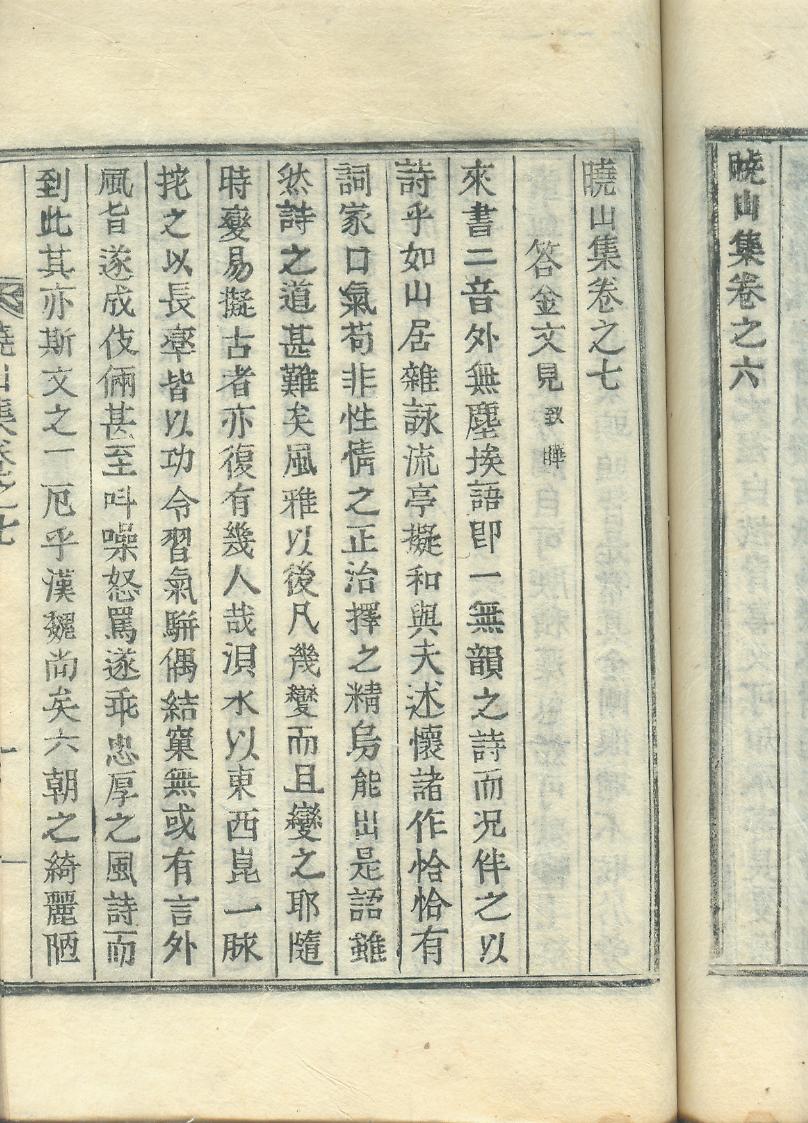 曉山集卷之六
曉山集卷之七
答金文見致曄
來書二音外無塵埃語卽一無韻之詩而况伴之以
詩乎如山居雜詠流亭擬和與夫述懷諸作恰恰有
詞家口氣苟非性情之正治擇之精烏能出是語雖
然詩之道甚難矣風雅以後凡幾變而且變之耶隨
時變易擬古者亦復有幾人哉浿水以東西崑一脉
挓之以長律皆以功令習氣騈偶結窠無或有言外
風旨遂成伎倆甚至呌噪怒罵遂乖忠厚之風詩而
到此其亦斯文之一厄乎漢魏尙矣六朝之綺麗陋
曉山集卷之七
一